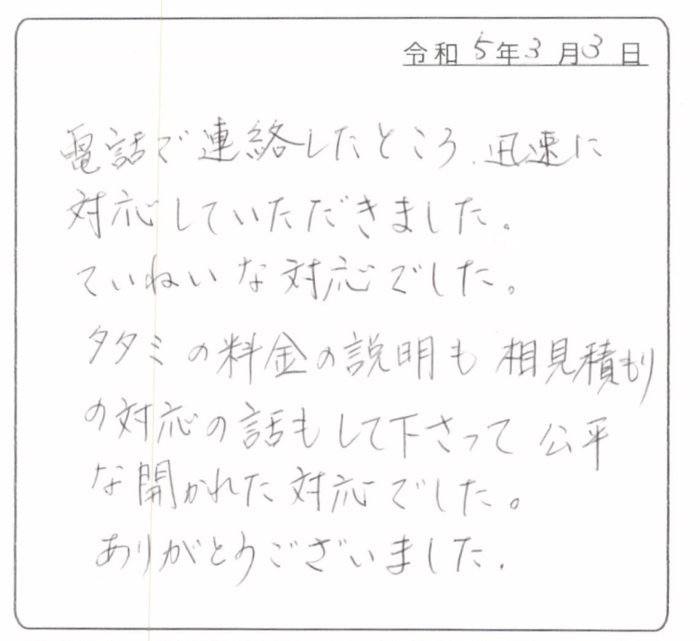 令和5年3月3日
電話で連絡したところ、迅速に
対応していただきました。
ていねいな対応でした。
タタミの料金の説明も相見積もり
の対応の話もして下さって公平
な開かれた対応でした。
ありがとうございました。